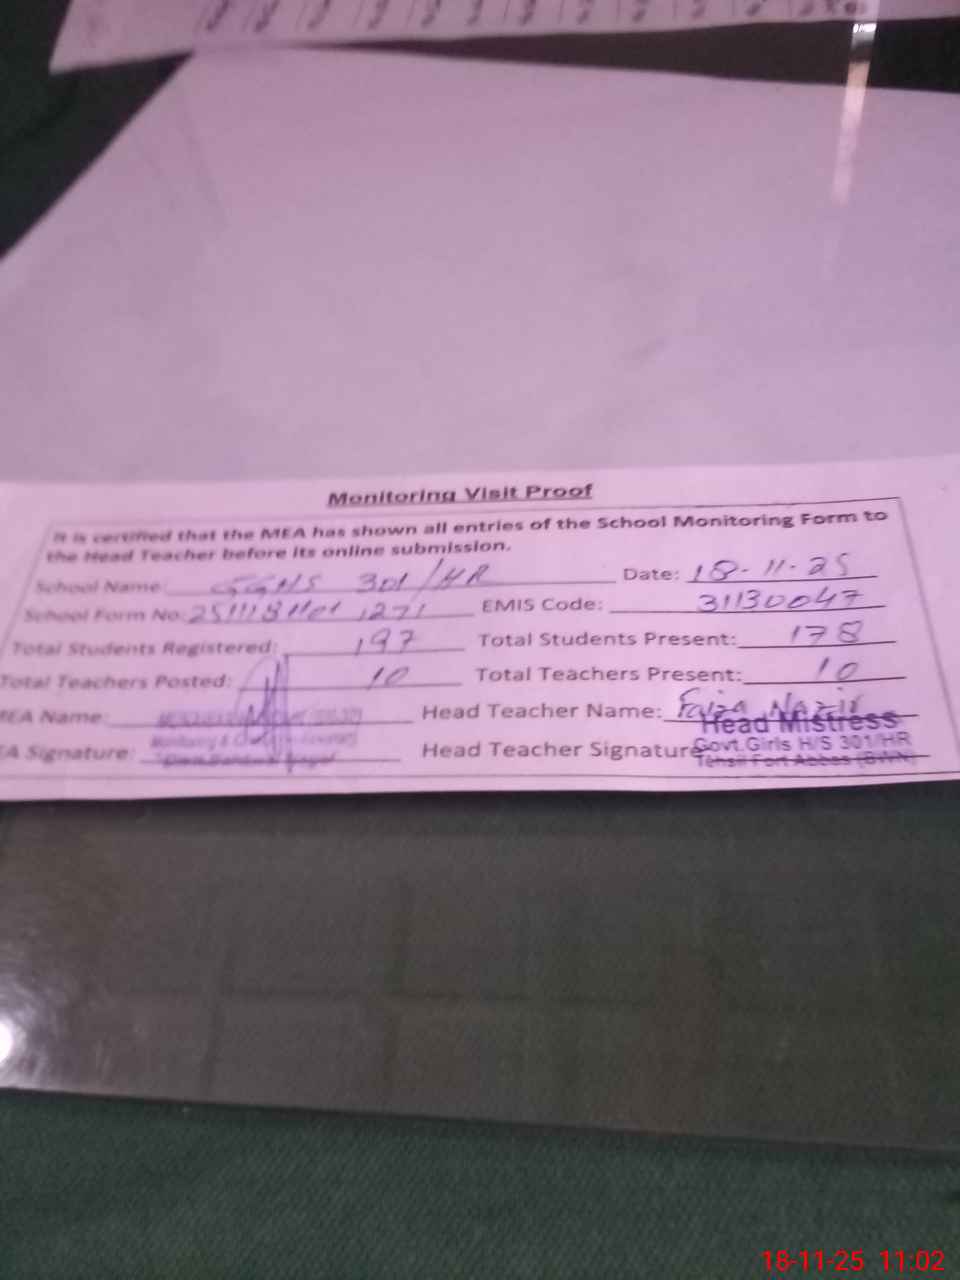 Monitoring Visit Proof
It is certified that the MEA has shown all entries of the School Monitoring Form to
the Head Teacher before its online submission.
School Name: GGHS 301/HR Date: 18-11-25
School Form No: 1271 EMIS Code: 31130047
Total Students Registered: 197 Total Students Present: 178
Total Teachers Posted: 10 Total Teachers Present: 10
MEA Name: Head Teacher Name: Faiza Nazir
EA Signature: Head Teacher Signature
Head Mistress
Govt.Girls H/S 301/HR
Tehsil Fort Abbas (BWN)
18-11-25 11:02